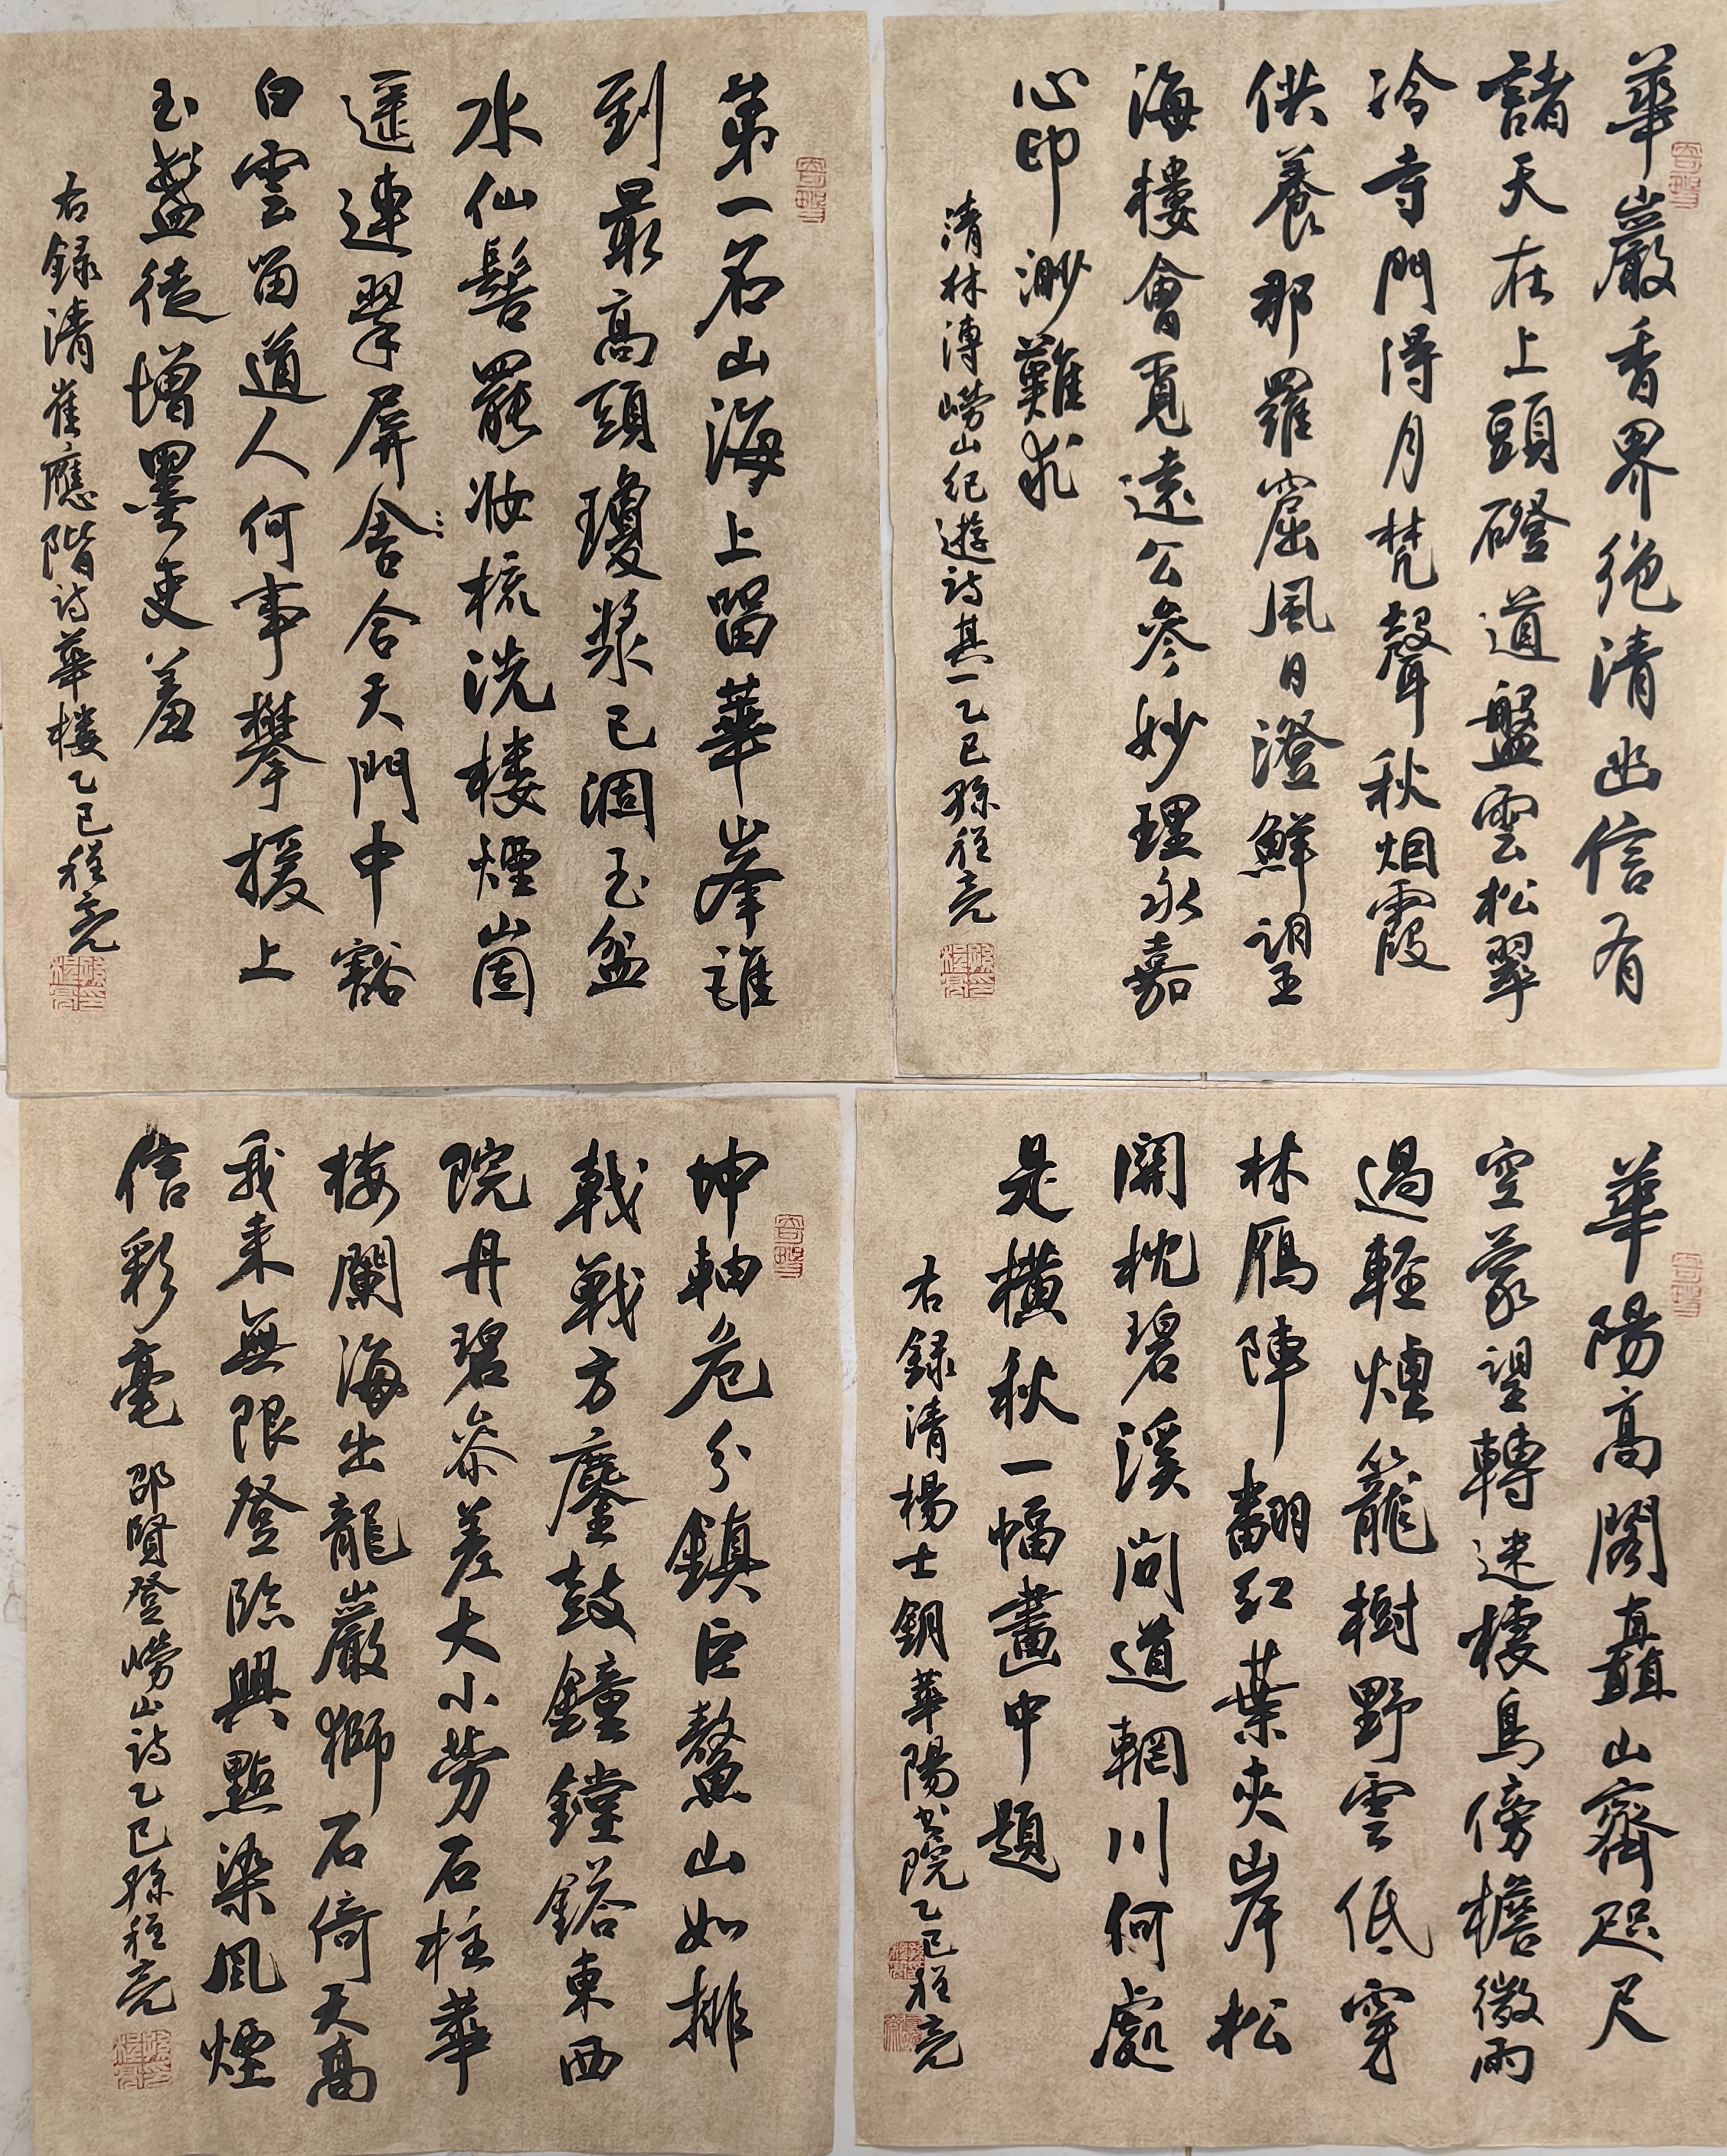 華嚴香界絶清幽信有
諸天在上頭磴道盤雲松翠
冷寺門得月梵聲秋烟霞
供養那羅窟風日澄鮮望
海樓會覓遠公參妙理永嘉
心印渺難求
清林溥嶗山纪遊诗其一乙巳孫程亮
第一名山海上留華峯誰
到最高頭瓊漿已涸玉盆
水仙髻罷妝梳洗樓煙崮
遥連翠屏舍合天門中豁
白雲留道人何事攀援上
玉盤徒增墨吏羞
右録清崔應階诗華楼乙巳程亮
華陽高閣矗山齋咫尺
空蒙望轉迷棲鳥傍檐微雨
過輕煙籠樹野雲低穿
林雁陣翻紅葉夾岸松
開枕碧溪问道輞川何處
是橫秋一幅畫中題
右録清楊士鑰華陽书院乙巳程亮
坤軸危分鎮巨鰲山如排
戟戰方鏖鼓鐘鏜鎝東西
院丹碧參差大小勞石柱華
楼闌海出龍巖獅石倚天高
我来無限登臨興點染風煙
信彩毫
邵賢登嶗山诗乙巳孫程亮